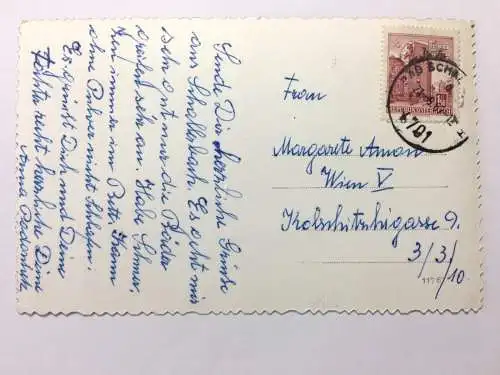 Sende Dir herzliche Grüße
aus Schallerbach. Es geht mir
sehr gut nur die Bäder
greifen sehr an. Habe Schmer
zen immer im Bett. Kann
ohne Pulver nicht schlafen.
Es grüßt Dich und Deine
Tochter recht herzlich Deine
Anna
Frau
Margarete Amon
Wien V
Kolschitzkigasse 9.
3/3/
10
BAD SCHAL
4701
REPUBLIK ÖSTERREICH